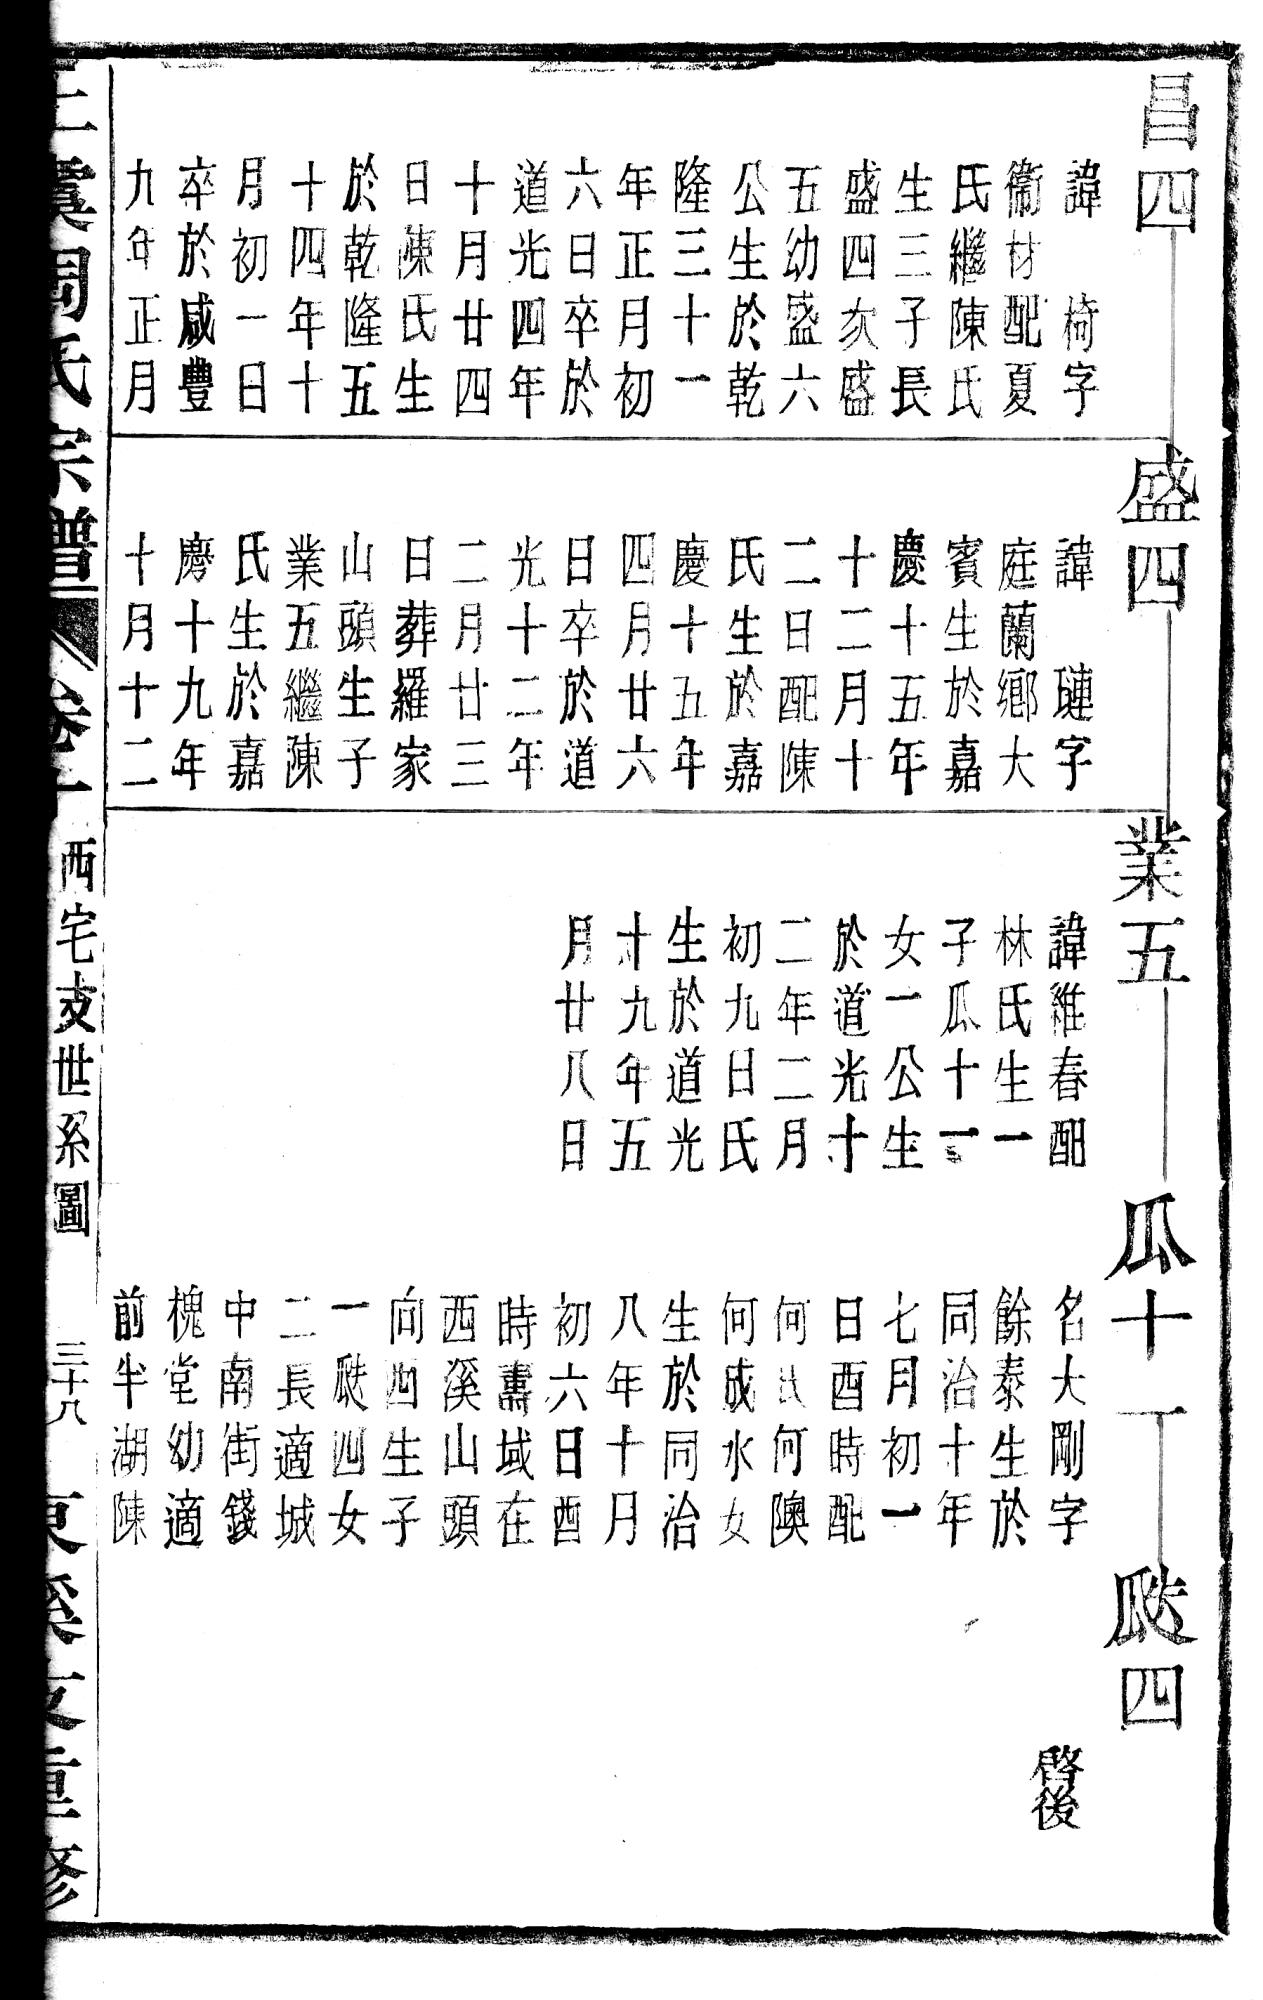 昌四
諱 椅字
衞材配夏
氏繼陳氏
生三子長
盛四次盛
五幼盛六
公生於乾
隆三十一
年正月初
六日卒於
道光四年
十月廿四
日陳氏生
於乾隆五
十四年十
月初一日
卒於咸豐
九年正月
盛四
諱 璉字
庭蘭鄉大
賓生於嘉
慶十五年
十二月十
二日配陳
氏生於嘉
慶十五年
四月廿六
日卒於道
光十二年
二月廿三
日葬羅家
山頭生子
業五繼陳
氏生於嘉
慶十九年
十月十二
業五
諱維春配
林氏生一
子瓜十一
女一公生
於道光十
二年二月
初九日氏
生於道光
十九年五
月廿八日
瓜十一
名大剛字
餘泰生於
同治十年
七月初一
日酉時配
何氏何隩
何成水女
生於同治
八年十月
初六日酉
時壽域在
西溪山頭
向西生子
一瓞四女
二長適城
中南街錢
槐堂幼適
前半湖陳
瓞四
啓後
上虞周氏宗譜 卷十 西宅支世系圖 三十八 東溪支重修